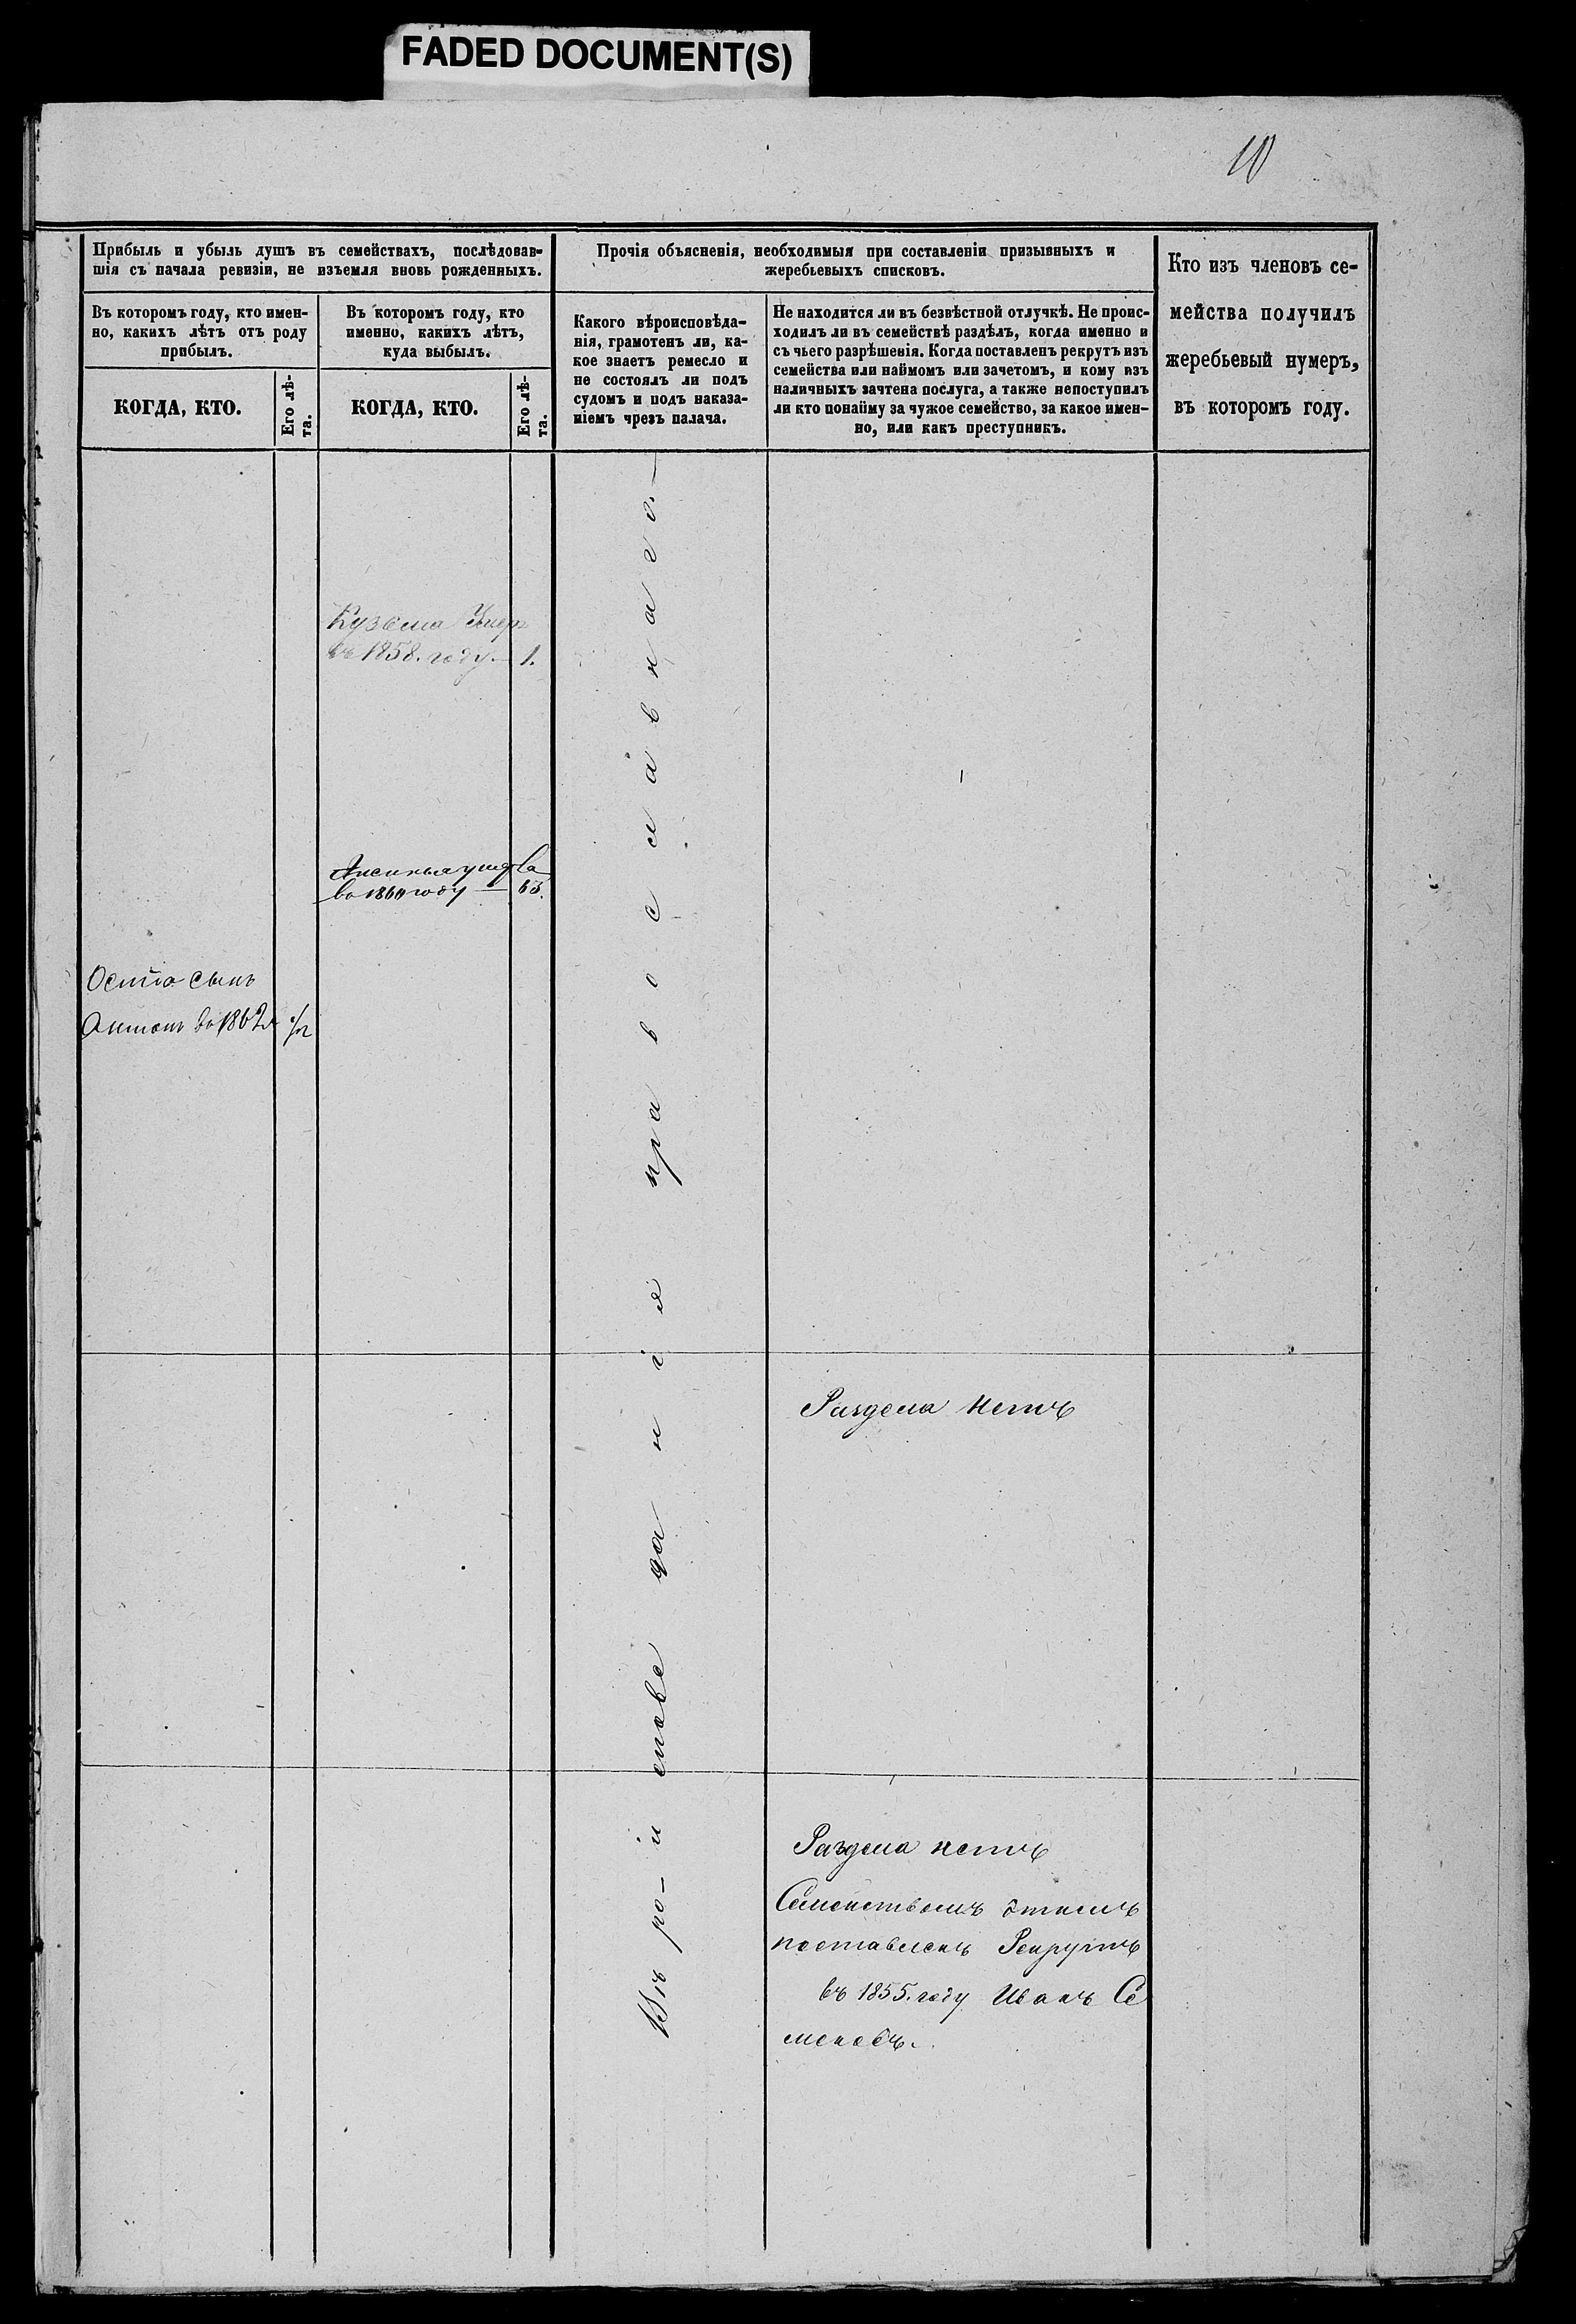 FADED DOCUMENT(S)
10
Прибыль и убыль душъ въ семействахъ, послѣдовав-
шія съ начала ревизіи, не изъемля вновь рожденныхъ.
Прочія объясненія, необходимыя при составленіи призывныхъ и
жеребьевыхъ списковъ.
Кто изъ членовъ се-
мейства получилъ
жеребьевый нумеръ,
въ которомъ году.
Въ которомъ году, кто имен-
но, какихъ лѣтъ отъ роду
прибылъ.
Въ которомъ году, кто
именно, какихъ лѣтъ,
куда выбылъ.
Какого вѣроисповѣда-
нія, грамотенъ ли, ка-
кое знаетъ ремесло и
не состоялъ ли подъ
судомъ и подъ наказа-
ніемъ чрезъ палача.
Не находится ли въ безвѣстной отлучкѣ. Не проис-
ходилъ ли въ семействѣ раздѣлъ, когда именно и
съ чьего разрѣшенія. Когда поставленъ рекрутъ изъ
семейства или наймомъ или зачетомъ, и кому изъ
наличныхъ зачтена послуга, а также непоступилъ
ли кто понайму за чужое семейство, за какое имен-
но, или какъ преступникъ.
КОГДА, КТО.
Его лѣ-
та.
КОГДА, КТО.
Его лѣ-
та.
Кузема Умеръ
въ 1858. году. — 1.
Аксинья умерла
во 1860 году — 63.
сынъ
Антонъ во 1862
Вѣроисповеданія православнаго.—
Раздела нетъ
Раздела нетъ
Семействомъ этимъ
поставленъ Рекрутъ
въ 1855. году Иванъ Се
меновъ.